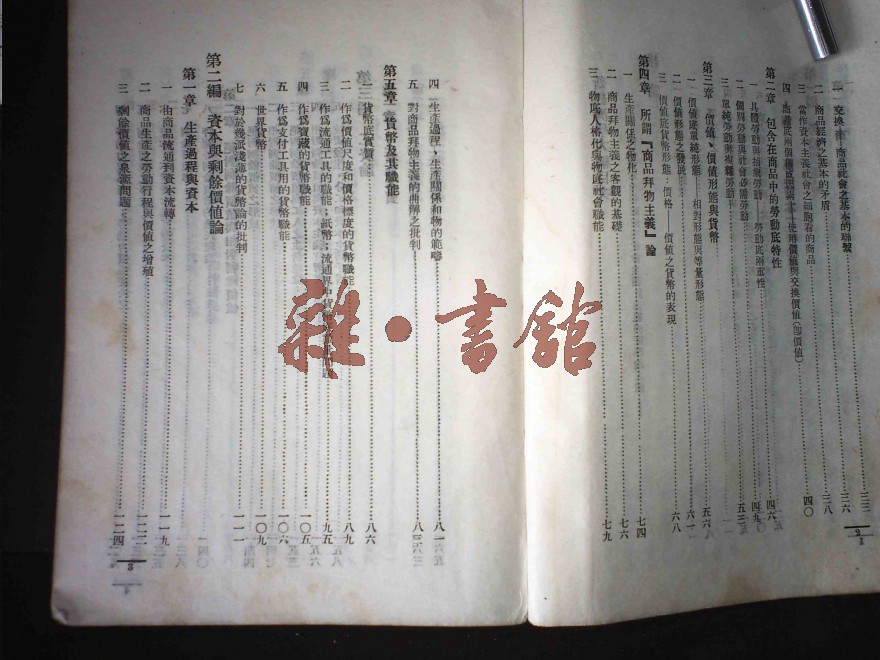 一 交換——商品社會之基本的聯繫……三三
二 商品經濟之基本的矛盾……三六
三 當作資本主義社會之細胞看的商品……三八
四 商品底兩個 使用價值與交換價值(即價值)……四〇
第二章 包含在商品中的勞動底特性……四六
一 具體勞動與抽象勞動——勞動底兩重性……四九
二 個別勞動與社會必需勞動
三 單純勞動與複雜勞動
第三章 價值、價值形態與貨幣……五六
一 價值底單純形態——相對形態與等量形態……六一
二 價值形態之發展
三 價值底貨幣形態——價格——價值之貨幣的表現……六八
第四章 所謂『商品拜物主義』論……七四
一 生產關係之物化
二 商品拜物主義之客觀的基礎……七六
三 物底人格化與物底社會職能……七九
2
四 生產過程、生產關係和物的範疇……八一
五 對商品拜物主義的曲解之批判……八三
第五章 貨幣及其職能
一 貨幣底實質……八六
二 作為價值尺度和價格標度的貨幣職能……八九
三 作為流通工具的職能;紙幣;流通界中貨幣……九五
四 作為寶藏的貨幣職能……一〇五
五 作為支付工具用的貨幣職能……一〇六
六 世界貨幣……一〇九
七 對於幾派淺薄的貨幣論的批判……一一一
第二編 資本與剩餘價值論
第一章 生產過程與資本
一 由商品流通到資本流轉……一一九
二 商品生產之勞動行程與價值之增殖……一二三
三 剩餘價值之泉源問題……一二四
3
雜·書館